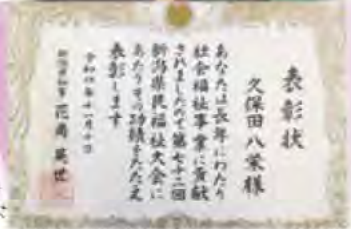 表彰状
久保田八栄様
あなたは長年にわたり
社会福祉事業に貢献
されましたので第七十二回
新潟県民福祉大会に
あたりその功績をたたえ
表彰します
令和四年十一月十日
新潟県知事 花角英世